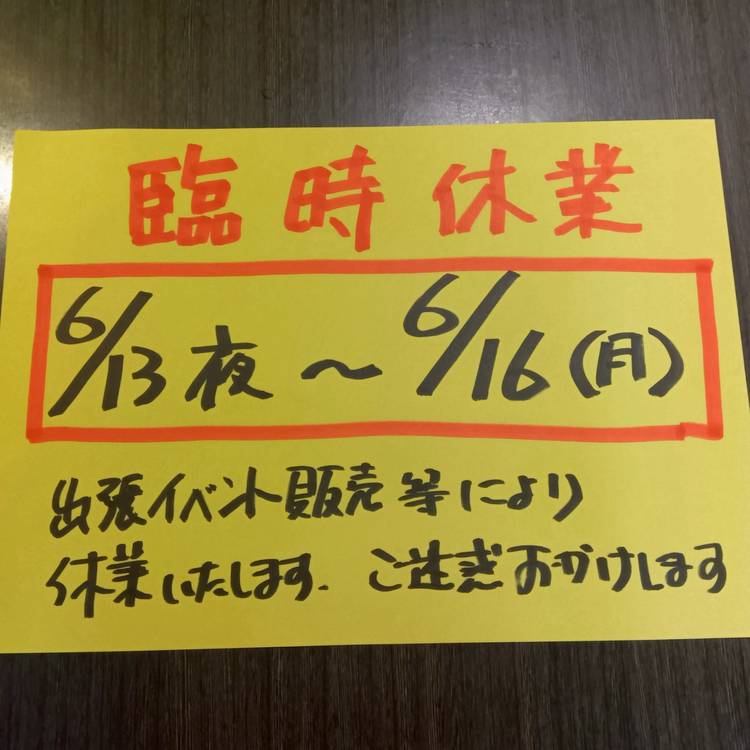 臨時休業
6/13夜〜6/16(月)
出張イベント販売等により
休業いたします. ご迷惑おかけします